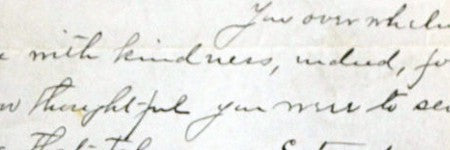 You overwhelm
with kindness, indeed, fo
thoughtful you were to se